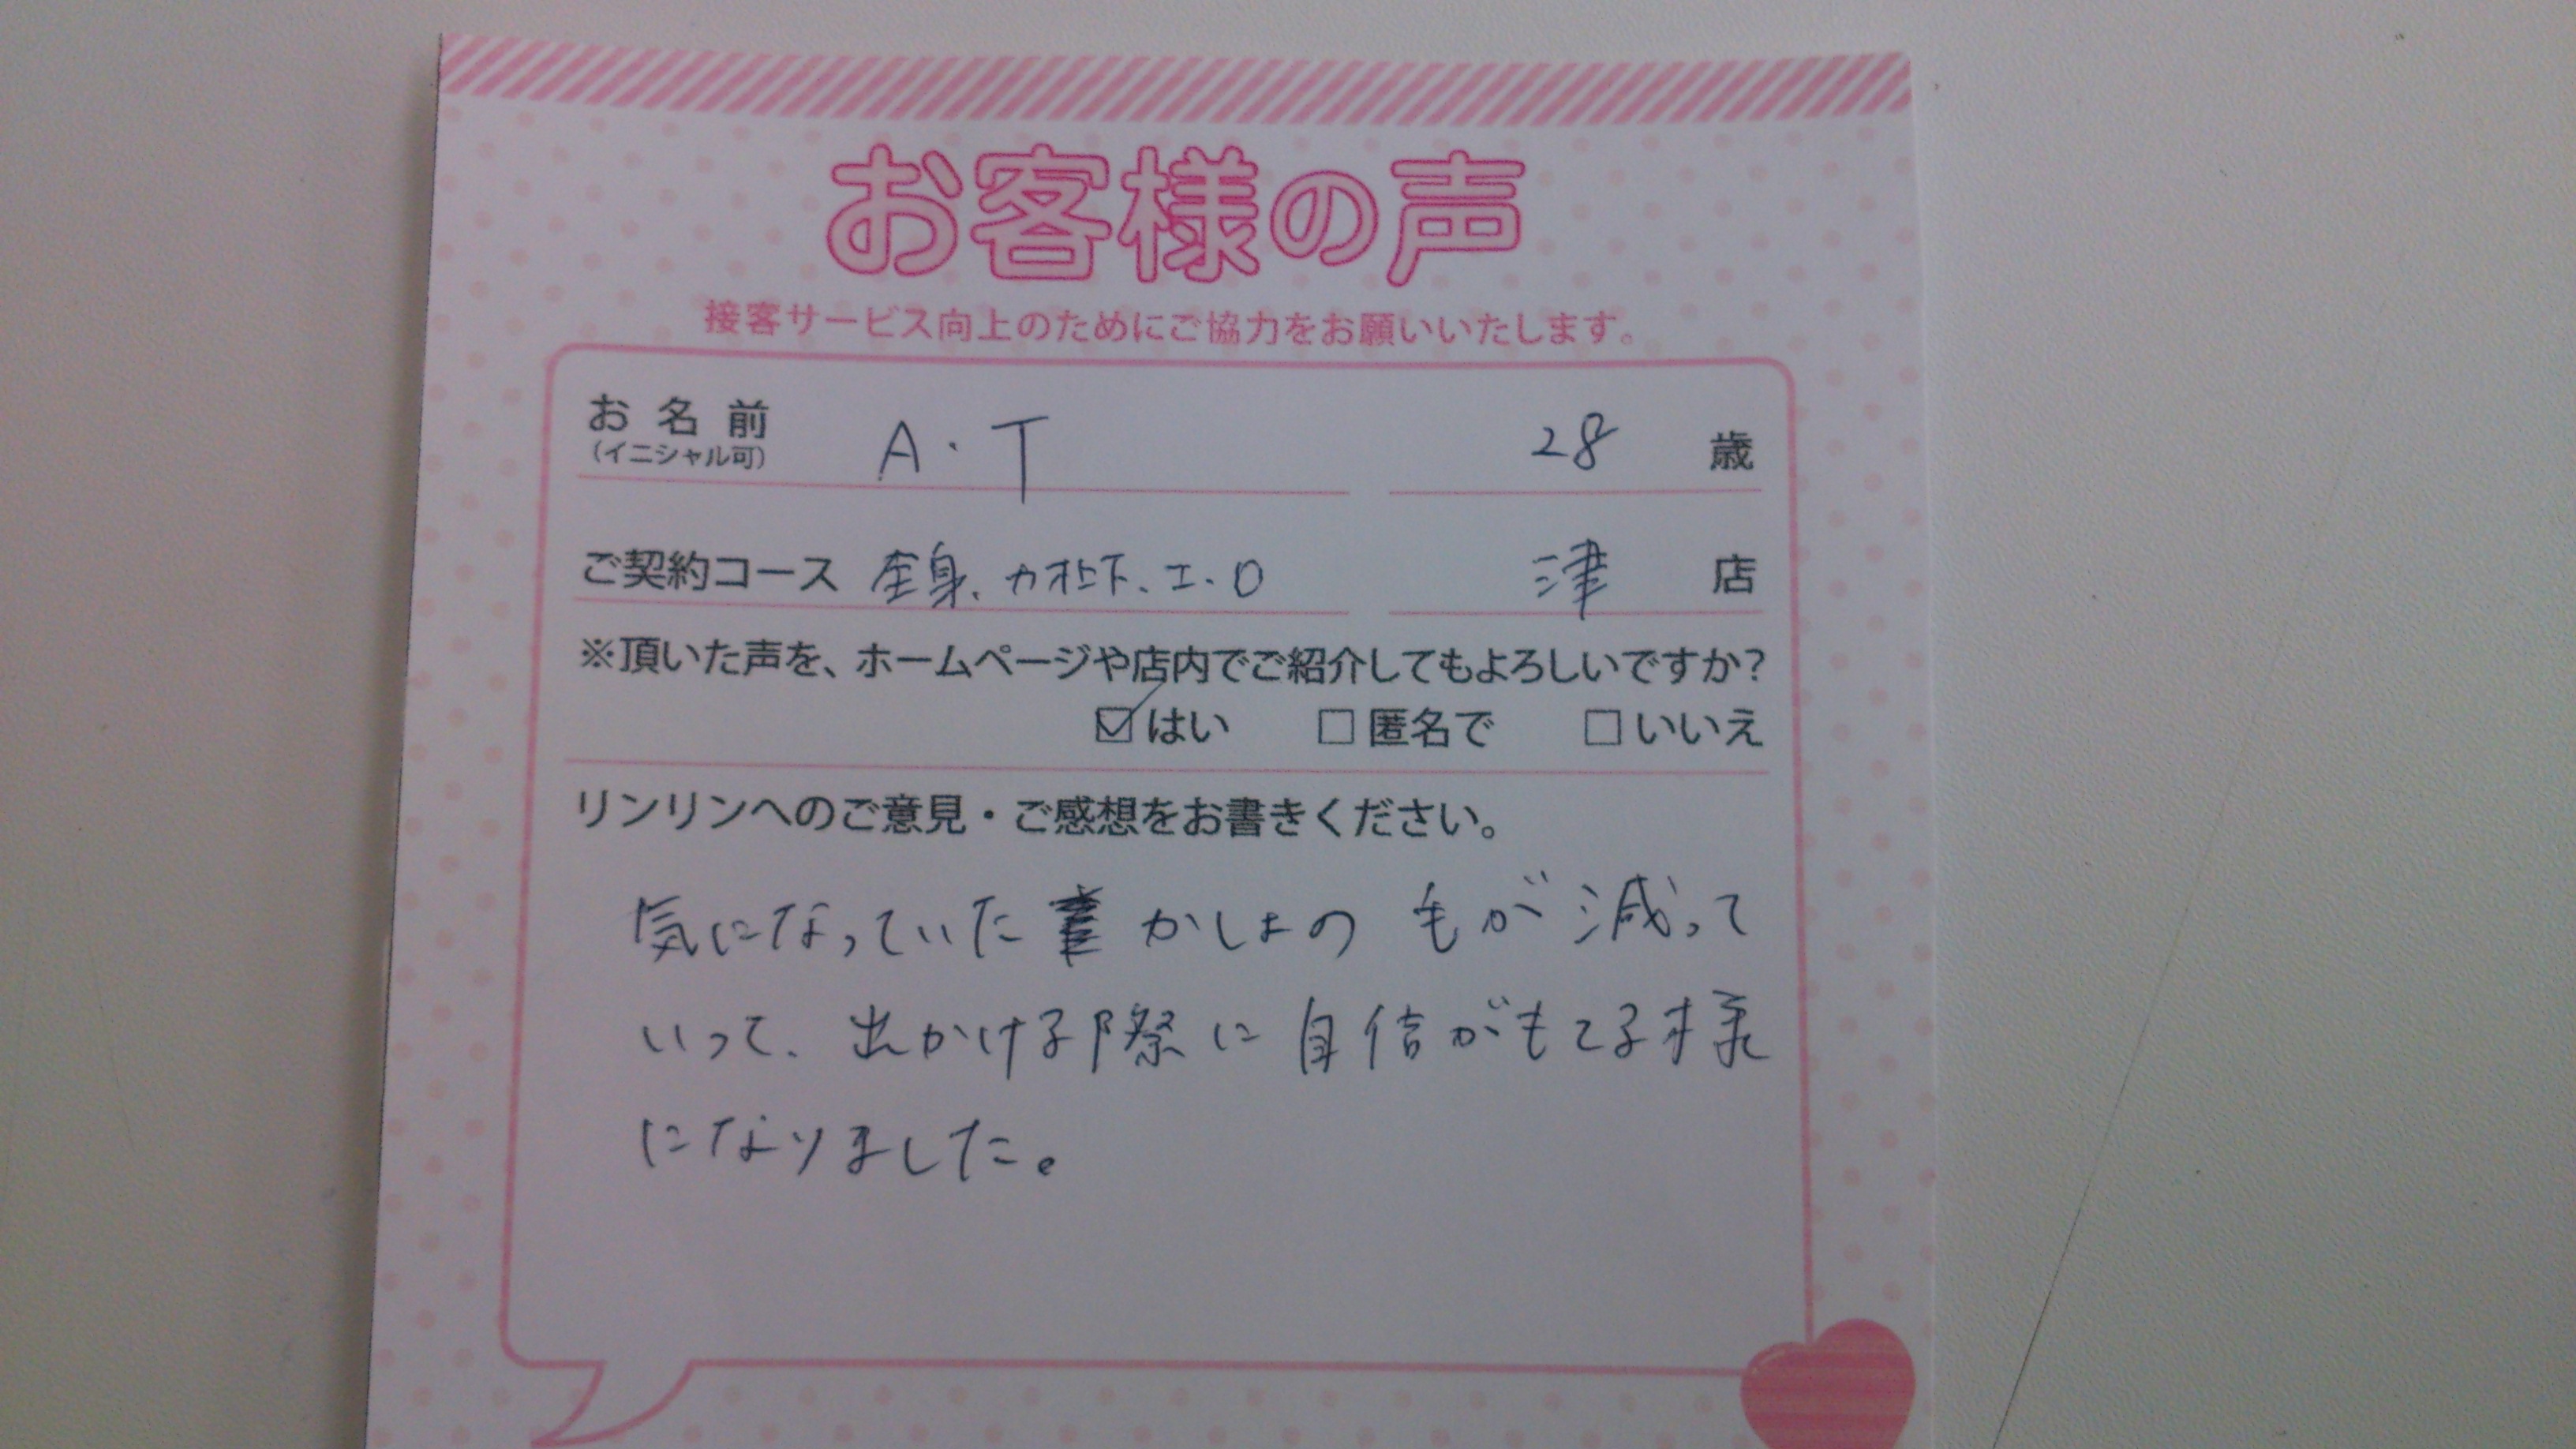 お客様の声
接客サービス向上のためにご協力をお願いいたします。
お名前 A・T 28 歳
(イニシャル可)
ご契約コース 全身、 エ・O 津 店
※頂いた声を、ホームページや店内でご紹介してもよろしいですか?
☑はい □匿名で □いいえ
リンリンへのご意見・ご感想をお書きください。
気になっていた かしょの 毛が減って
いって、出かける際に自信がもてる様
になりました。